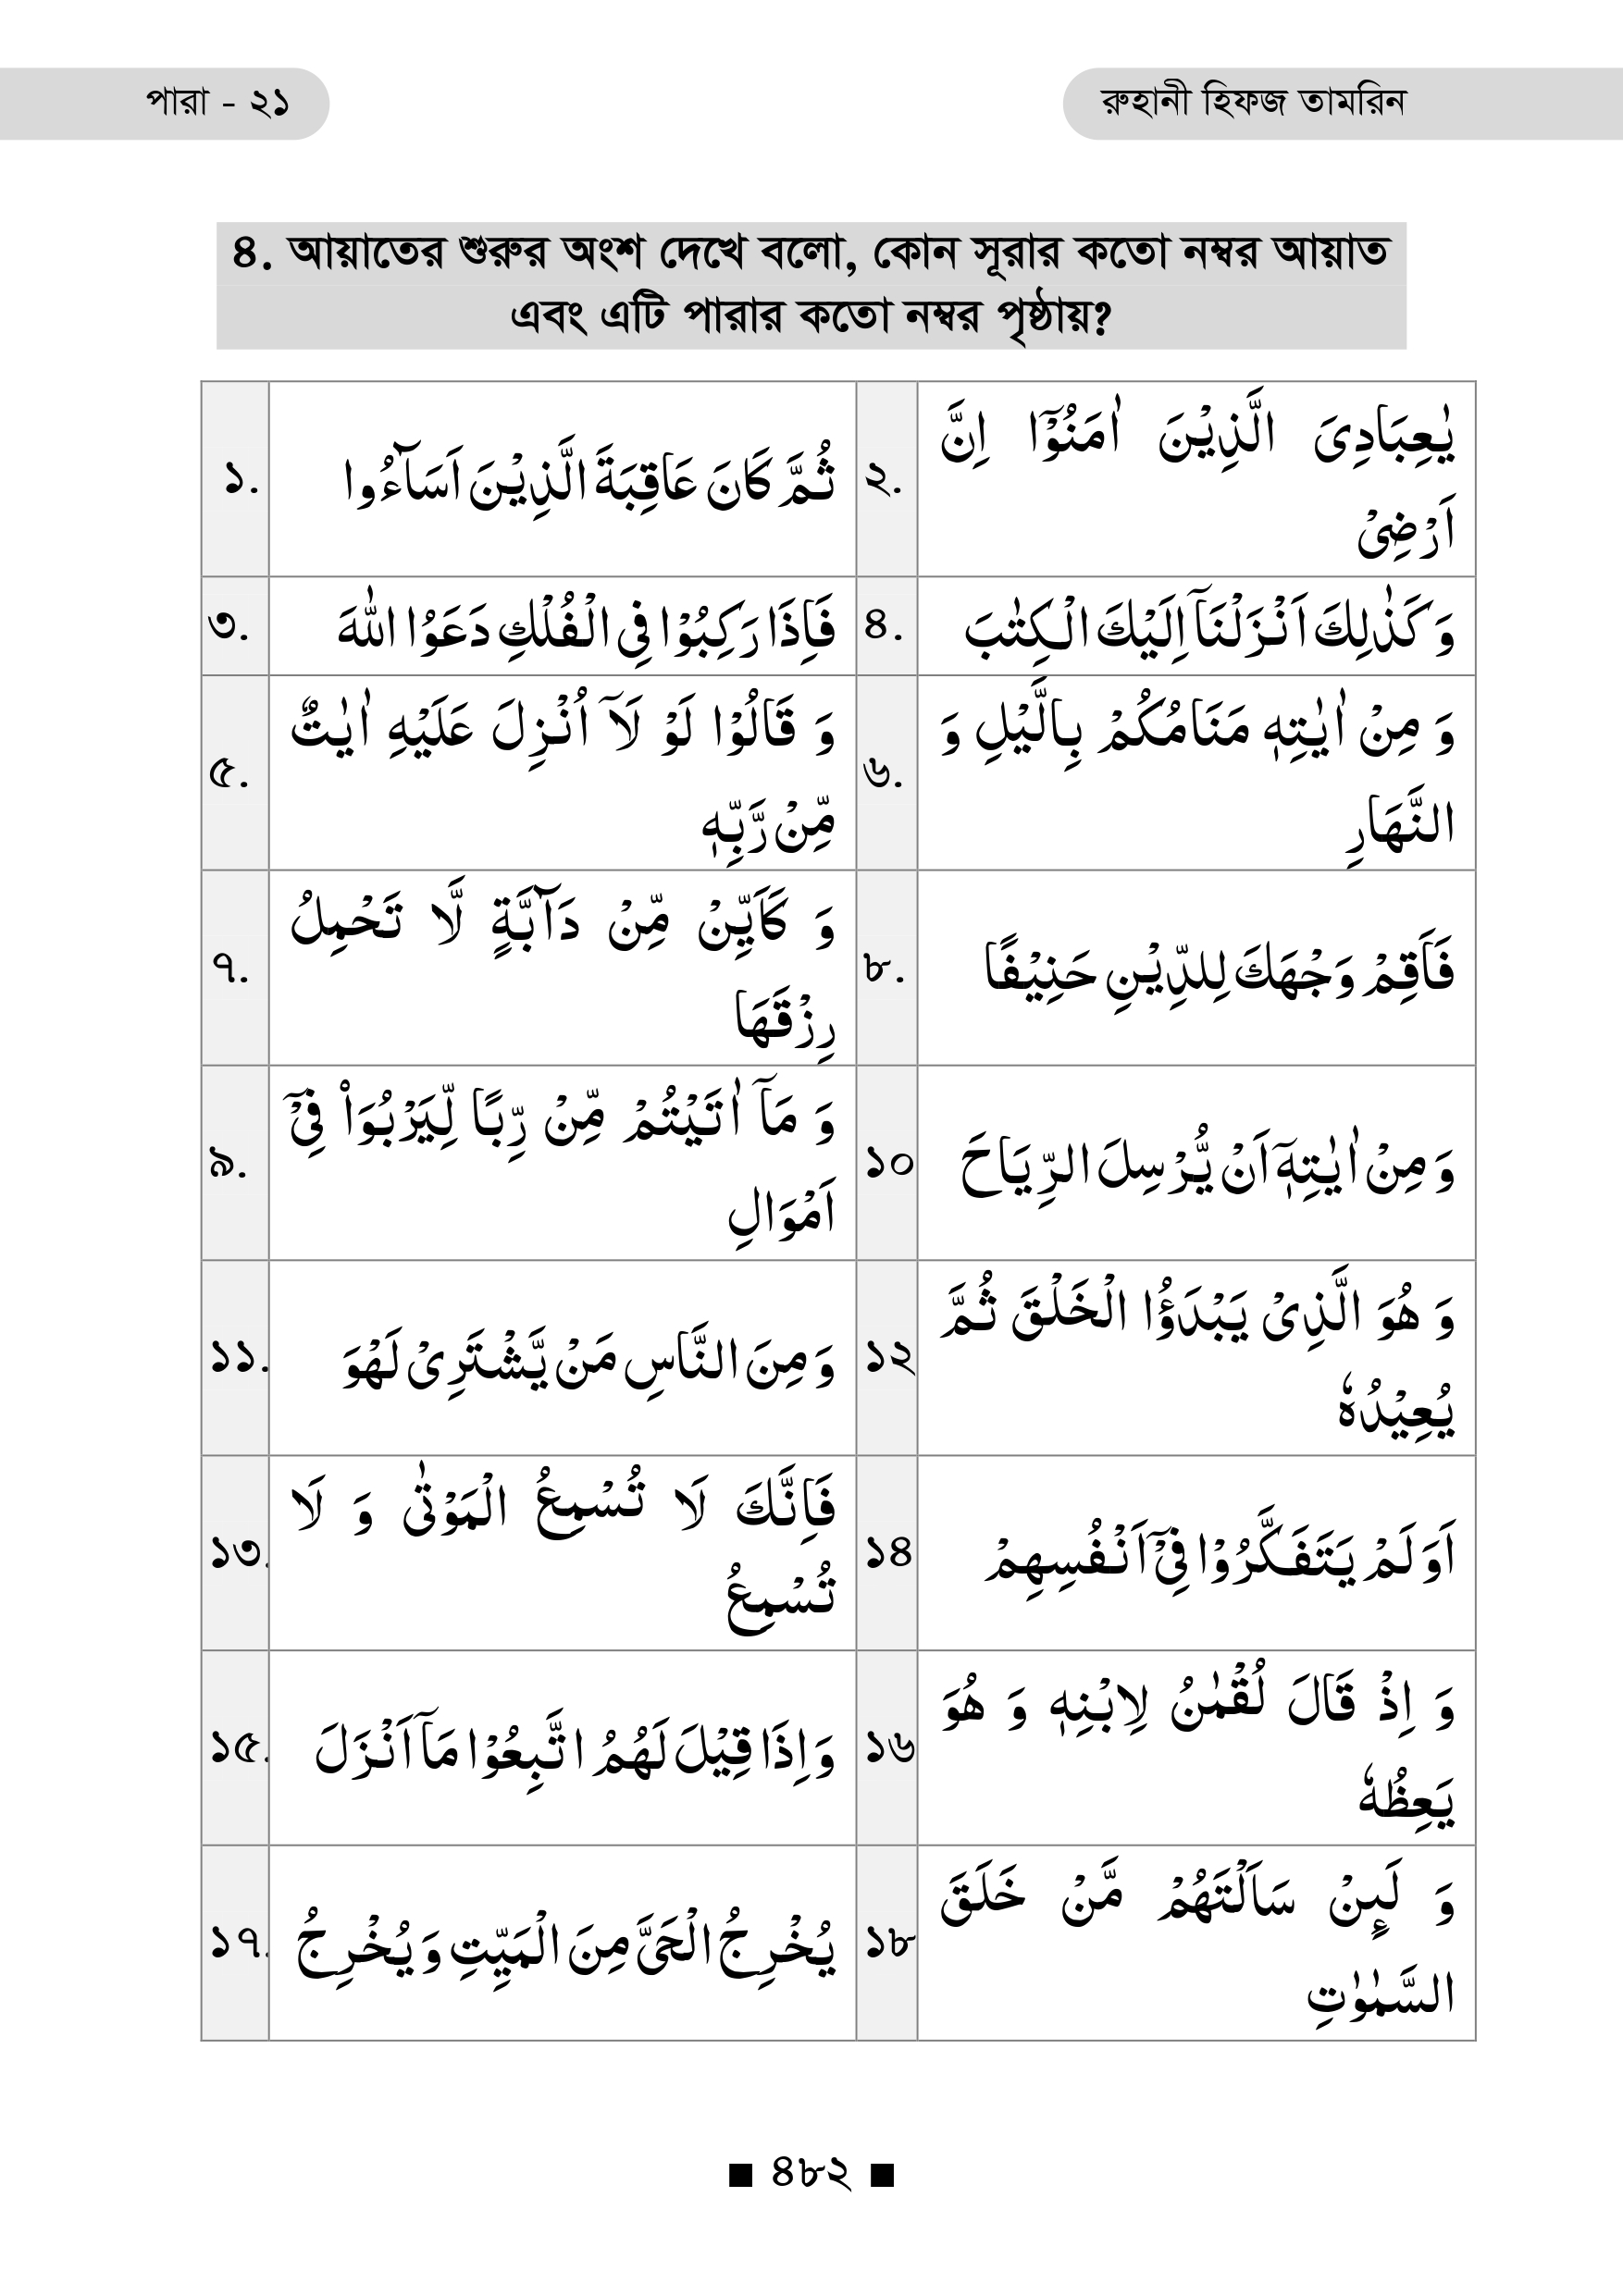 পারা - ২১
রুহানী হিফজ তামরিন
৪. আয়াতের শুরুর অংশ দেখে বলো, কোন সূরার কতো নম্বর আয়াত
এবং এটি পারার কতো নম্বর পৃষ্ঠায়?
১.
ثُمَّ كَانَ عَاقِبَةَ الَّذِيْنَ اَسَآءُوا
২.
يٰعِبَادِيَ الَّذِيْنَ اٰمَنُوْۤا اِنَّ
اَرْضِيْ
৩.
فَاِذَا رَكِبُوْا فِي الْفُلْكِ دَعَوُا اللّٰهَ
৪.
وَ كَذٰلِكَ اَنْزَلْنَاۤ اِلَيْكَ الْكِتٰبَ
৫.
وَ قَالُوْا لَوْ لَاۤ اُنْزِلَ عَلَيْهِ اٰيٰتٌ
مِّنْ رَّبِّهٖ
৬.
وَ مِنْ اٰيٰتِهٖ مَنَامُكُمْ بِالَّيْلِ وَ
النَّهَارِ
৭.
وَ كَاَيِّنْ مِّنْ دَآبَّةٍ لَّا تَحْمِلُ
رِزْقَهَا
৮.
فَاَقِمْ وَجْهَكَ لِلدِّيْنِ حَنِيْفًا
৯.
وَ مَاۤ اٰتَيْتُمْ مِّنْ رِّبًا لِّيَرْبُوَا۠ فِيْۤ
اَمْوَالِ
১০
وَ مِنْ اٰيٰتِهٖۤ اَنْ يُّرْسِلَ الرِّيَاحَ
১১.
وَ مِنَ النَّاسِ مَنْ يَّشْتَرِيْ لَهْوَ
১২
وَ هُوَ الَّذِيْ يَبْدَؤُا الْخَلْقَ ثُمَّ
يُعِيْدُهٗ
১৩.
فَاِنَّكَ لَا تُسْمِعُ الْمَوْتٰى وَ لَا
تُسْمِعُ
১৪
اَوَ لَمْ يَتَفَكَّرُوْا فِيْۤ اَنْفُسِهِمْ
১৫.
وَ اِذَا قِيْلَ لَهُمُ اتَّبِعُوْا مَاۤ اَنْزَلَ
১৬
وَ اِذْ قَالَ لُقْمٰنُ لِابْنِهٖ وَ هُوَ
يَعِظُهٗ
১৭.
يُخْرِجُ الْحَيَّ مِنَ الْمَيِّتِ وَ يُخْرِجُ
১৮
وَ لَىِٕنْ سَاَلْتَهُمْ مَّنْ خَلَقَ
السَّمٰوٰتِ
■ ৪৮২ ■